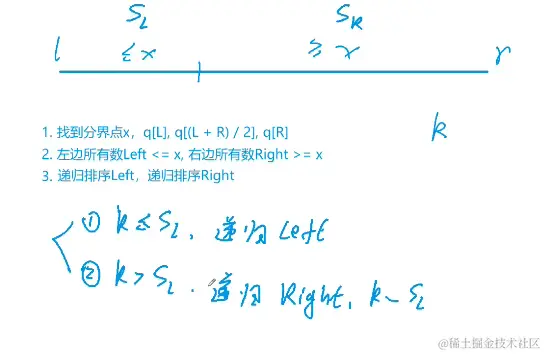 S_L S_R
l ≤ x ≥ x r
k
1. 找到分界点x，q[L], q[(L + R) / 2], q[R]
2. 左边所有数Left <= x, 右边所有数Right >= x
3. 递归排序Left，递归排序Right
① k ≤ S_L. 递归 Left
② k > S_L. 递归 Right, k - S_L
@稀土掘金技术社区